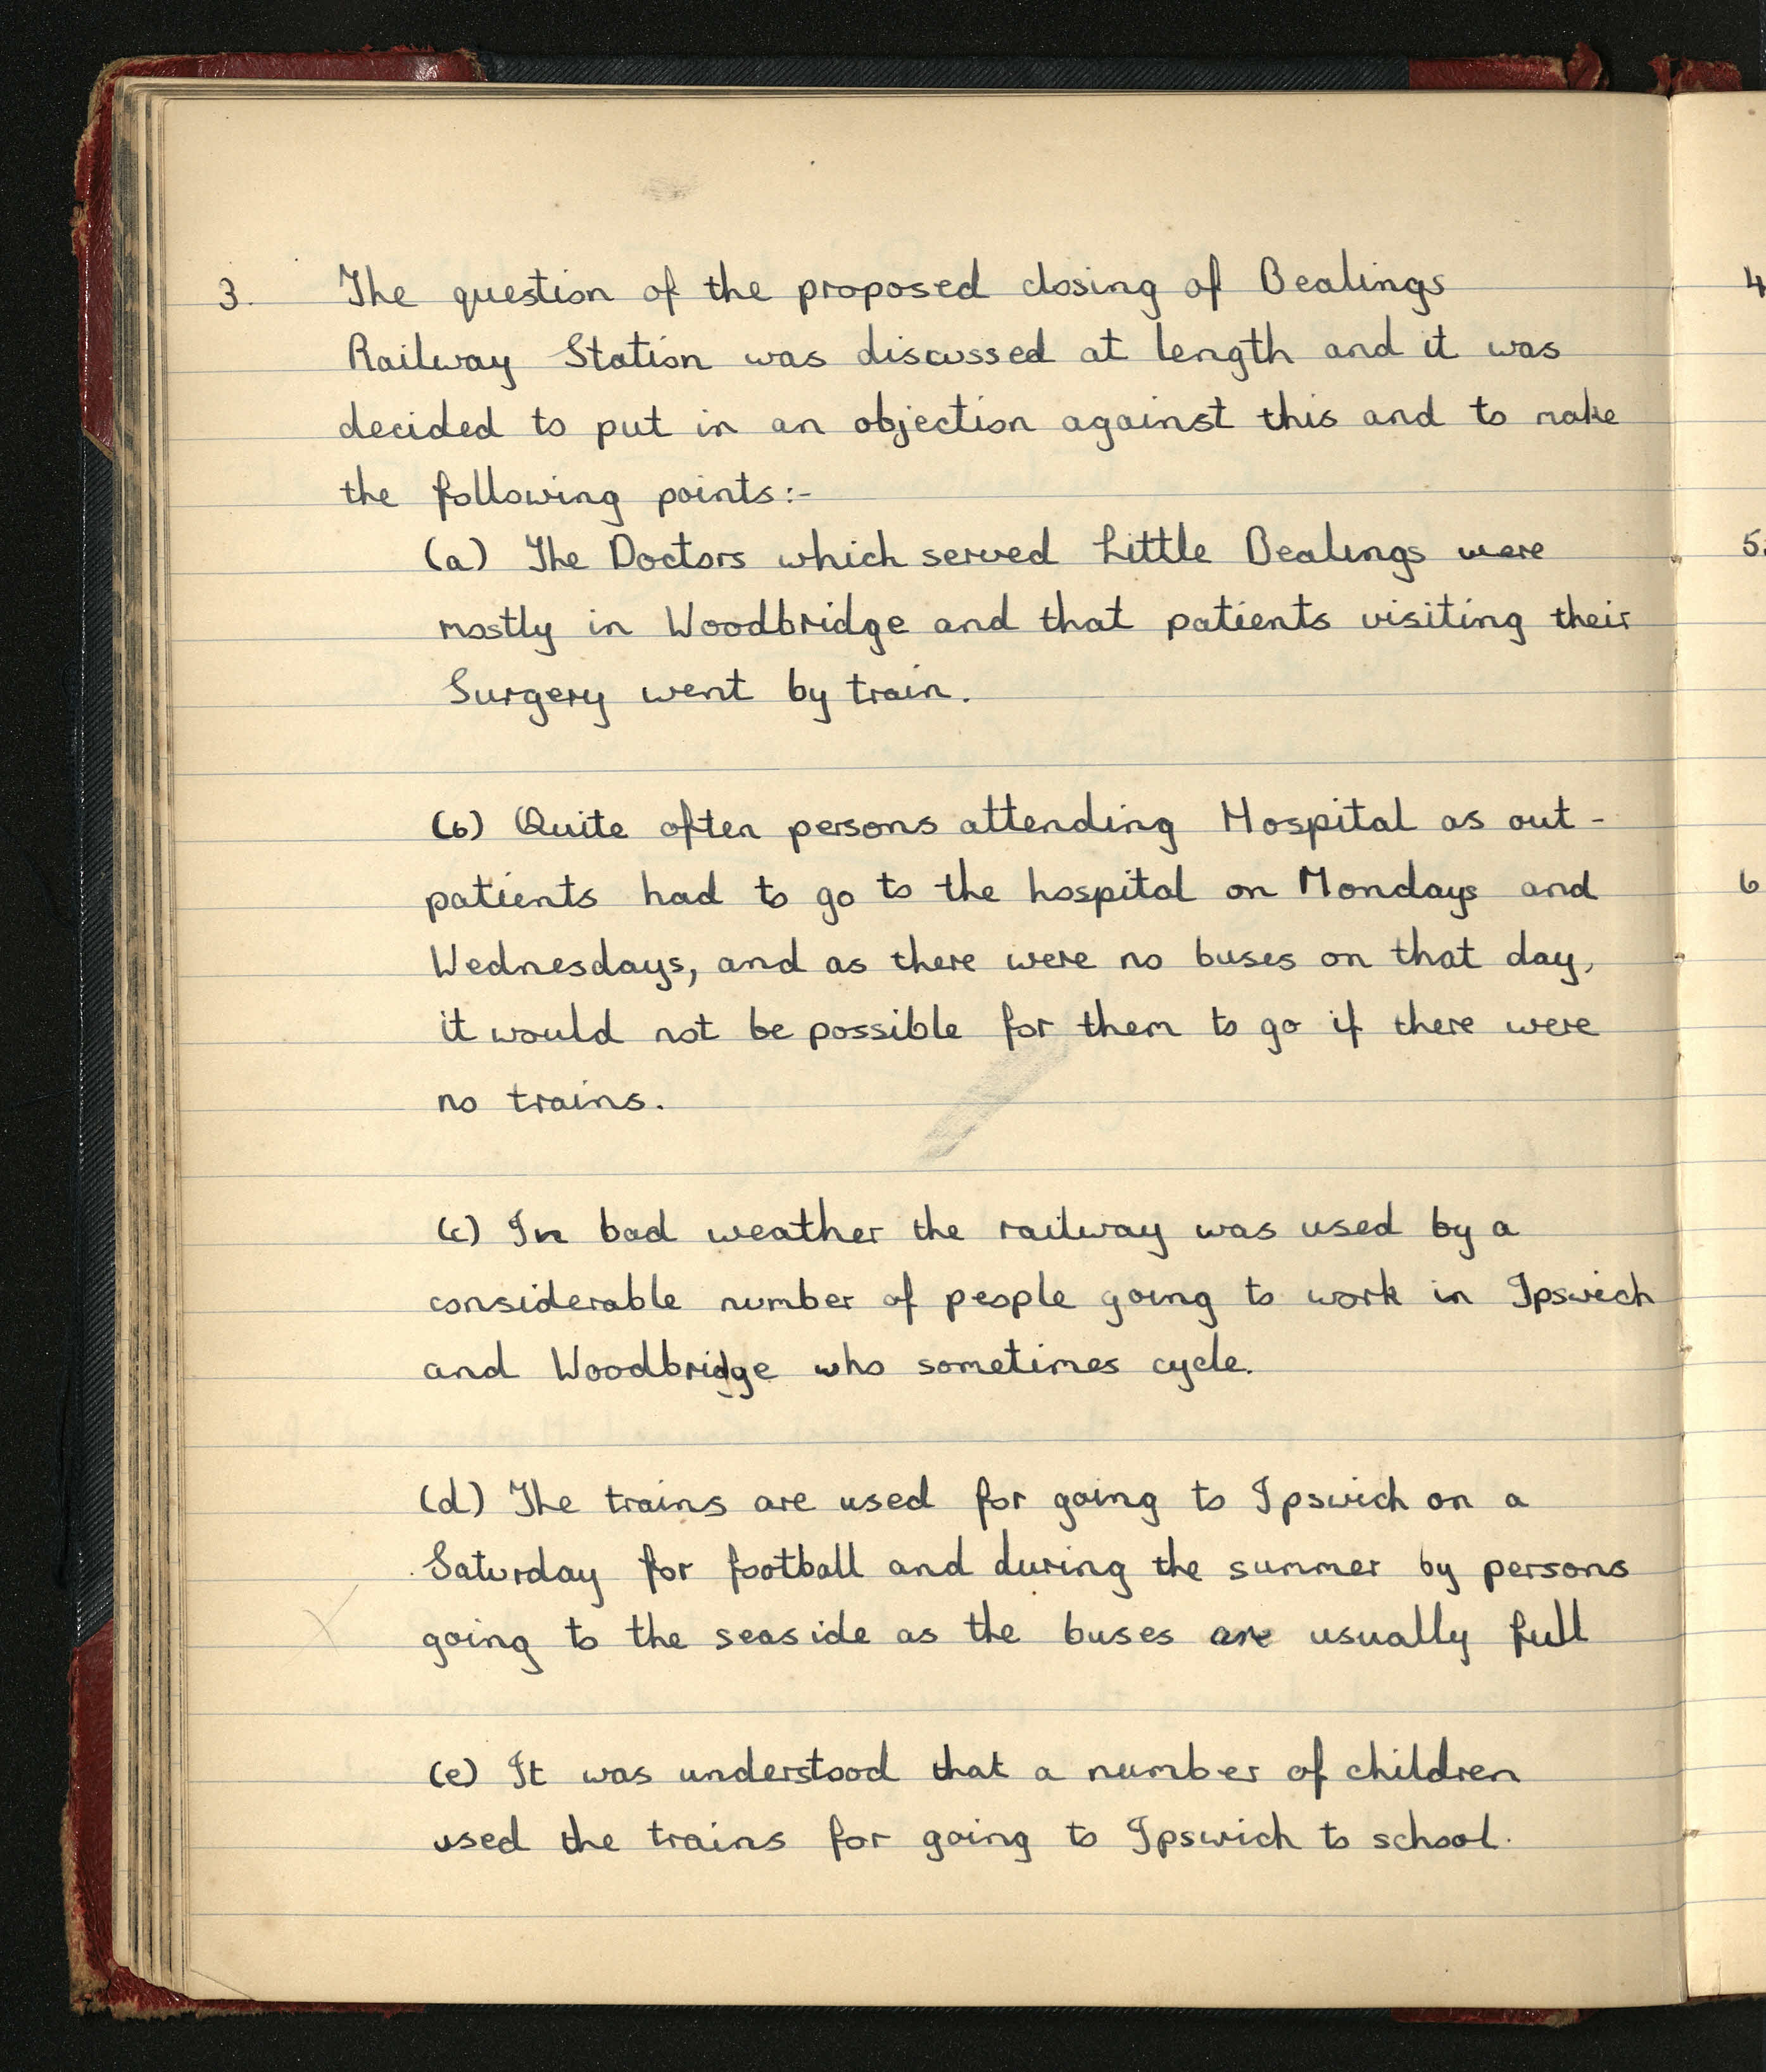 3. The question of the proposed closing of Bealings
Railway Station was discussed at length and it was
decided to put in an objection against this and to make
the following points:-
(a) The Doctors which served Little Bealings were
mostly in Woodbridge and that patients visiting their
Surgery went by train.
(b) Quite often persons attending Hospital as out-
patients had to go to the hospital on Mondays and
Wednesdays, and as there were no buses on that day,
it would not be possible for them to go if there were
no trains.
(c) In bad weather the railway was used by a
considerable number of people going to work in Ipswich
and Woodbridge who sometimes cycle.
(d) The trains are used for going to Ipswich on a
Saturday for football and during the summer by persons
going to the seaside as the buses are usually full
(e) It was understood that a number of children
used the trains for going to Ipswich to school.
4
5.
6